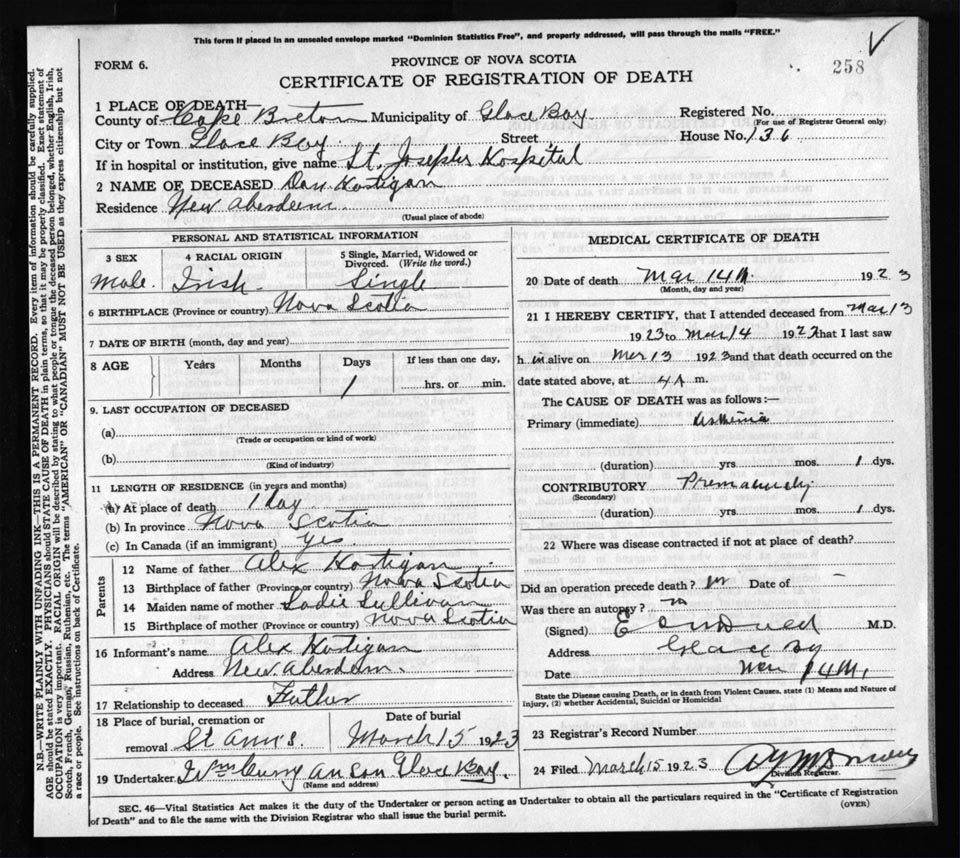 This form if placed in an unsealed envelope marked "Dominion Statistics Free", and properly addressed, will pass through the mails "FREE."
FORM 6.
PROVINCE OF NOVA SCOTIA
258
CERTIFICATE OF REGISTRATION OF DEATH
1 PLACE OF DEATH—
County of Cape Breton Municipality of Glace Bay Registered No.
(For use of Registrar General only)
City or Town Glace Bay Street House No. 136
If in hospital or institution, give name St. Josephs Hospital
2 NAME OF DECEASED Dan Hartigan
Residence New Aberdeen
(Usual place of abode)
PERSONAL AND STATISTICAL INFORMATION
3 SEX 4 RACIAL ORIGIN 5 Single, Married, Widowed or Divorced. (Write the word.)
Male. Irish. Single
6 BIRTHPLACE (Province or country) Nova Scotia
7 DATE OF BIRTH (month, day and year)
8 AGE Years Months Days If less than one day,
1 hrs. or min.
9. LAST OCCUPATION OF DECEASED
(a)
(Trade or occupation or kind of work)
(b)
(Kind of industry)
11 LENGTH OF RESIDENCE (in years and months)
(a) At place of death 1 Day
(b) In province Nova Scotia
(c) In Canada (if an immigrant) yes.
Parents
12 Name of father Alex Hartigan
13 Birthplace of father (Province or country) Nova Scotia
14 Maiden name of mother Sadie Sullivan
15 Birthplace of mother (Province or country) Nova Scotia
16 Informant's name Alex Hartigan
Address New Aberdeen.
17 Relationship to deceased Father
18 Place of burial, cremation or Date of burial
removal St Ann's. March 15 1923
19 Undertaker Wm Curry and Son Glace Bay.
(Name and address)
MEDICAL CERTIFICATE OF DEATH
20 Date of death Mar 14th 1923
(Month, day and year)
21 I HEREBY CERTIFY, that I attended deceased from Mar 13
1923 to Mar 14 1923 that I last saw
h im alive on Mar 13 1923 and that death occurred on the
date stated above, at 4 A m.
The CAUSE OF DEATH was as follows:—
Primary (immediate) Asthenia
(duration) yrs. mos. 1 dys.
CONTRIBUTORY Prematurity
(Secondary)
(duration) yrs. mos. 1 dys.
22 Where was disease contracted if not at place of death?
Did an operation precede death? no Date of –
Was there an autopsy? no
(Signed) M.D.
Address Glace Bay
Date Mar 14th.
State the Disease causing Death, or in death from Violent Causes, state (1) Means and Nature of
injury, (2) whether Accidental, Suicidal or Homicidal
23 Registrar's Record Number
24 Filed March 15 1923
Division Registrar.
SEC. 46—Vital Statistics Act makes it the duty of the Undertaker or person acting as Undertaker to obtain all the particulars required in the "Certificate of Registration
of Death" and to file the same with the Division Registrar who shall issue the burial permit.
(OVER)
N.B.—WRITE PLAINLY WITH UNFADING INK—THIS IS A PERMANENT RECORD. Every item of information should be carefully supplied.
AGE should be stated EXACTLY. PHYSICIANS should STATE CAUSE OF DEATH in plain terms, so that it may be properly classified. Exact statement of
OCCUPATION is very important. RACIAL ORIGIN will be described by stating to what people or tongue the deceased person belonged, whether English, Irish,
Scotch, French, German, Russian, Ruthenian, etc. The terms "AMERICAN" OR "CANADIAN" MUST NOT BE USED as they express citizenship but not
a race or people. See instructions on back of Certificate.